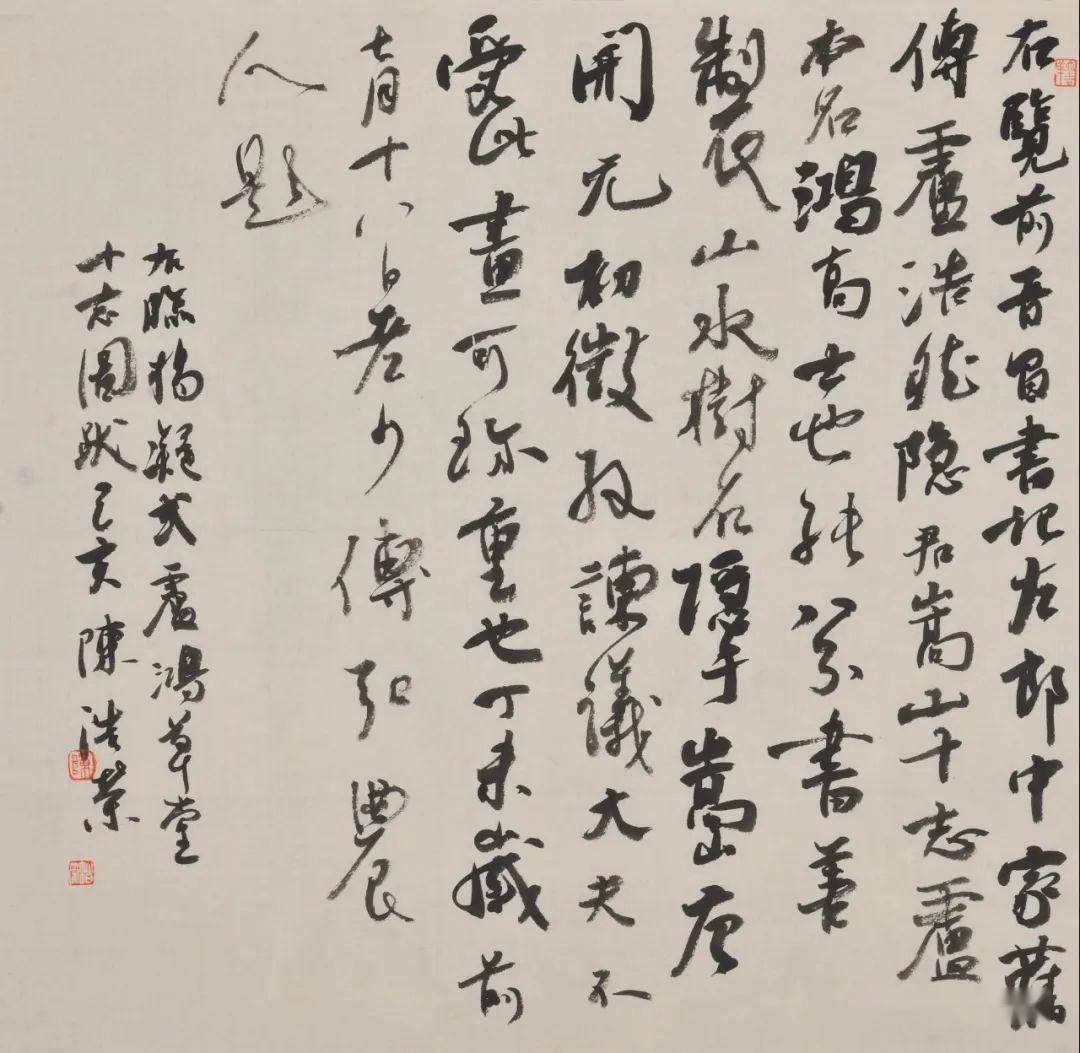 右覽前晉昌書記左郎中家舊
傳盧浩然隐居嵩山十志盧
本名鴻高士也能八分書善
製山水樹石隱于嵩山唐
開元初徵拜諫議大夫不
受此畫可珍重也丁未歲前
七月十八日老少傅弘農
人題
右臨楊凝式盧鴻草堂
十志圖跋己亥陳浩榮